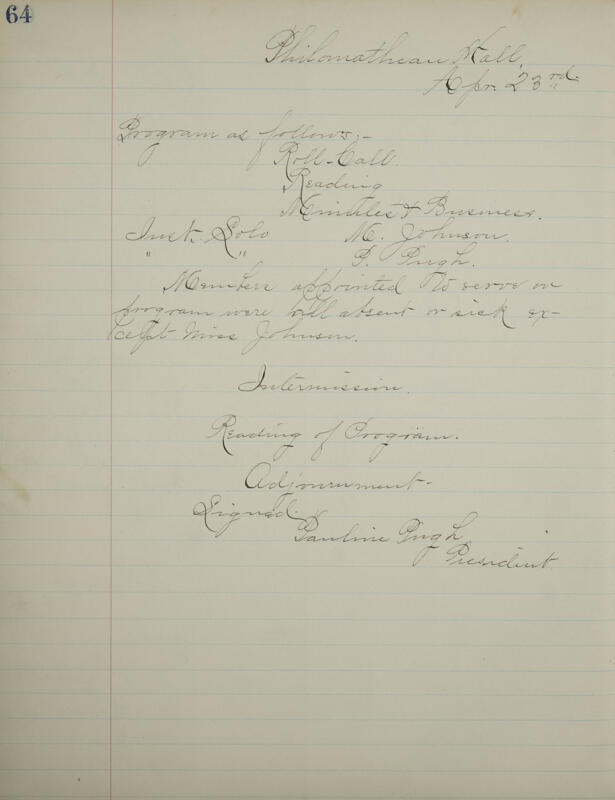 64
Philomathean Hall,
Apr. 23rd.
Program as follows:-
Roll-Call.
Reading
Minutes & Business.
Inst. Solo M. Johnson.
" " P. Pugh.
Members appointed to serve on
program were all absent or sick ex-
cept Miss Johnson.
Intermission.
Reading of Program.
Adjournment-
Signed.
Pauline Pugh,
President